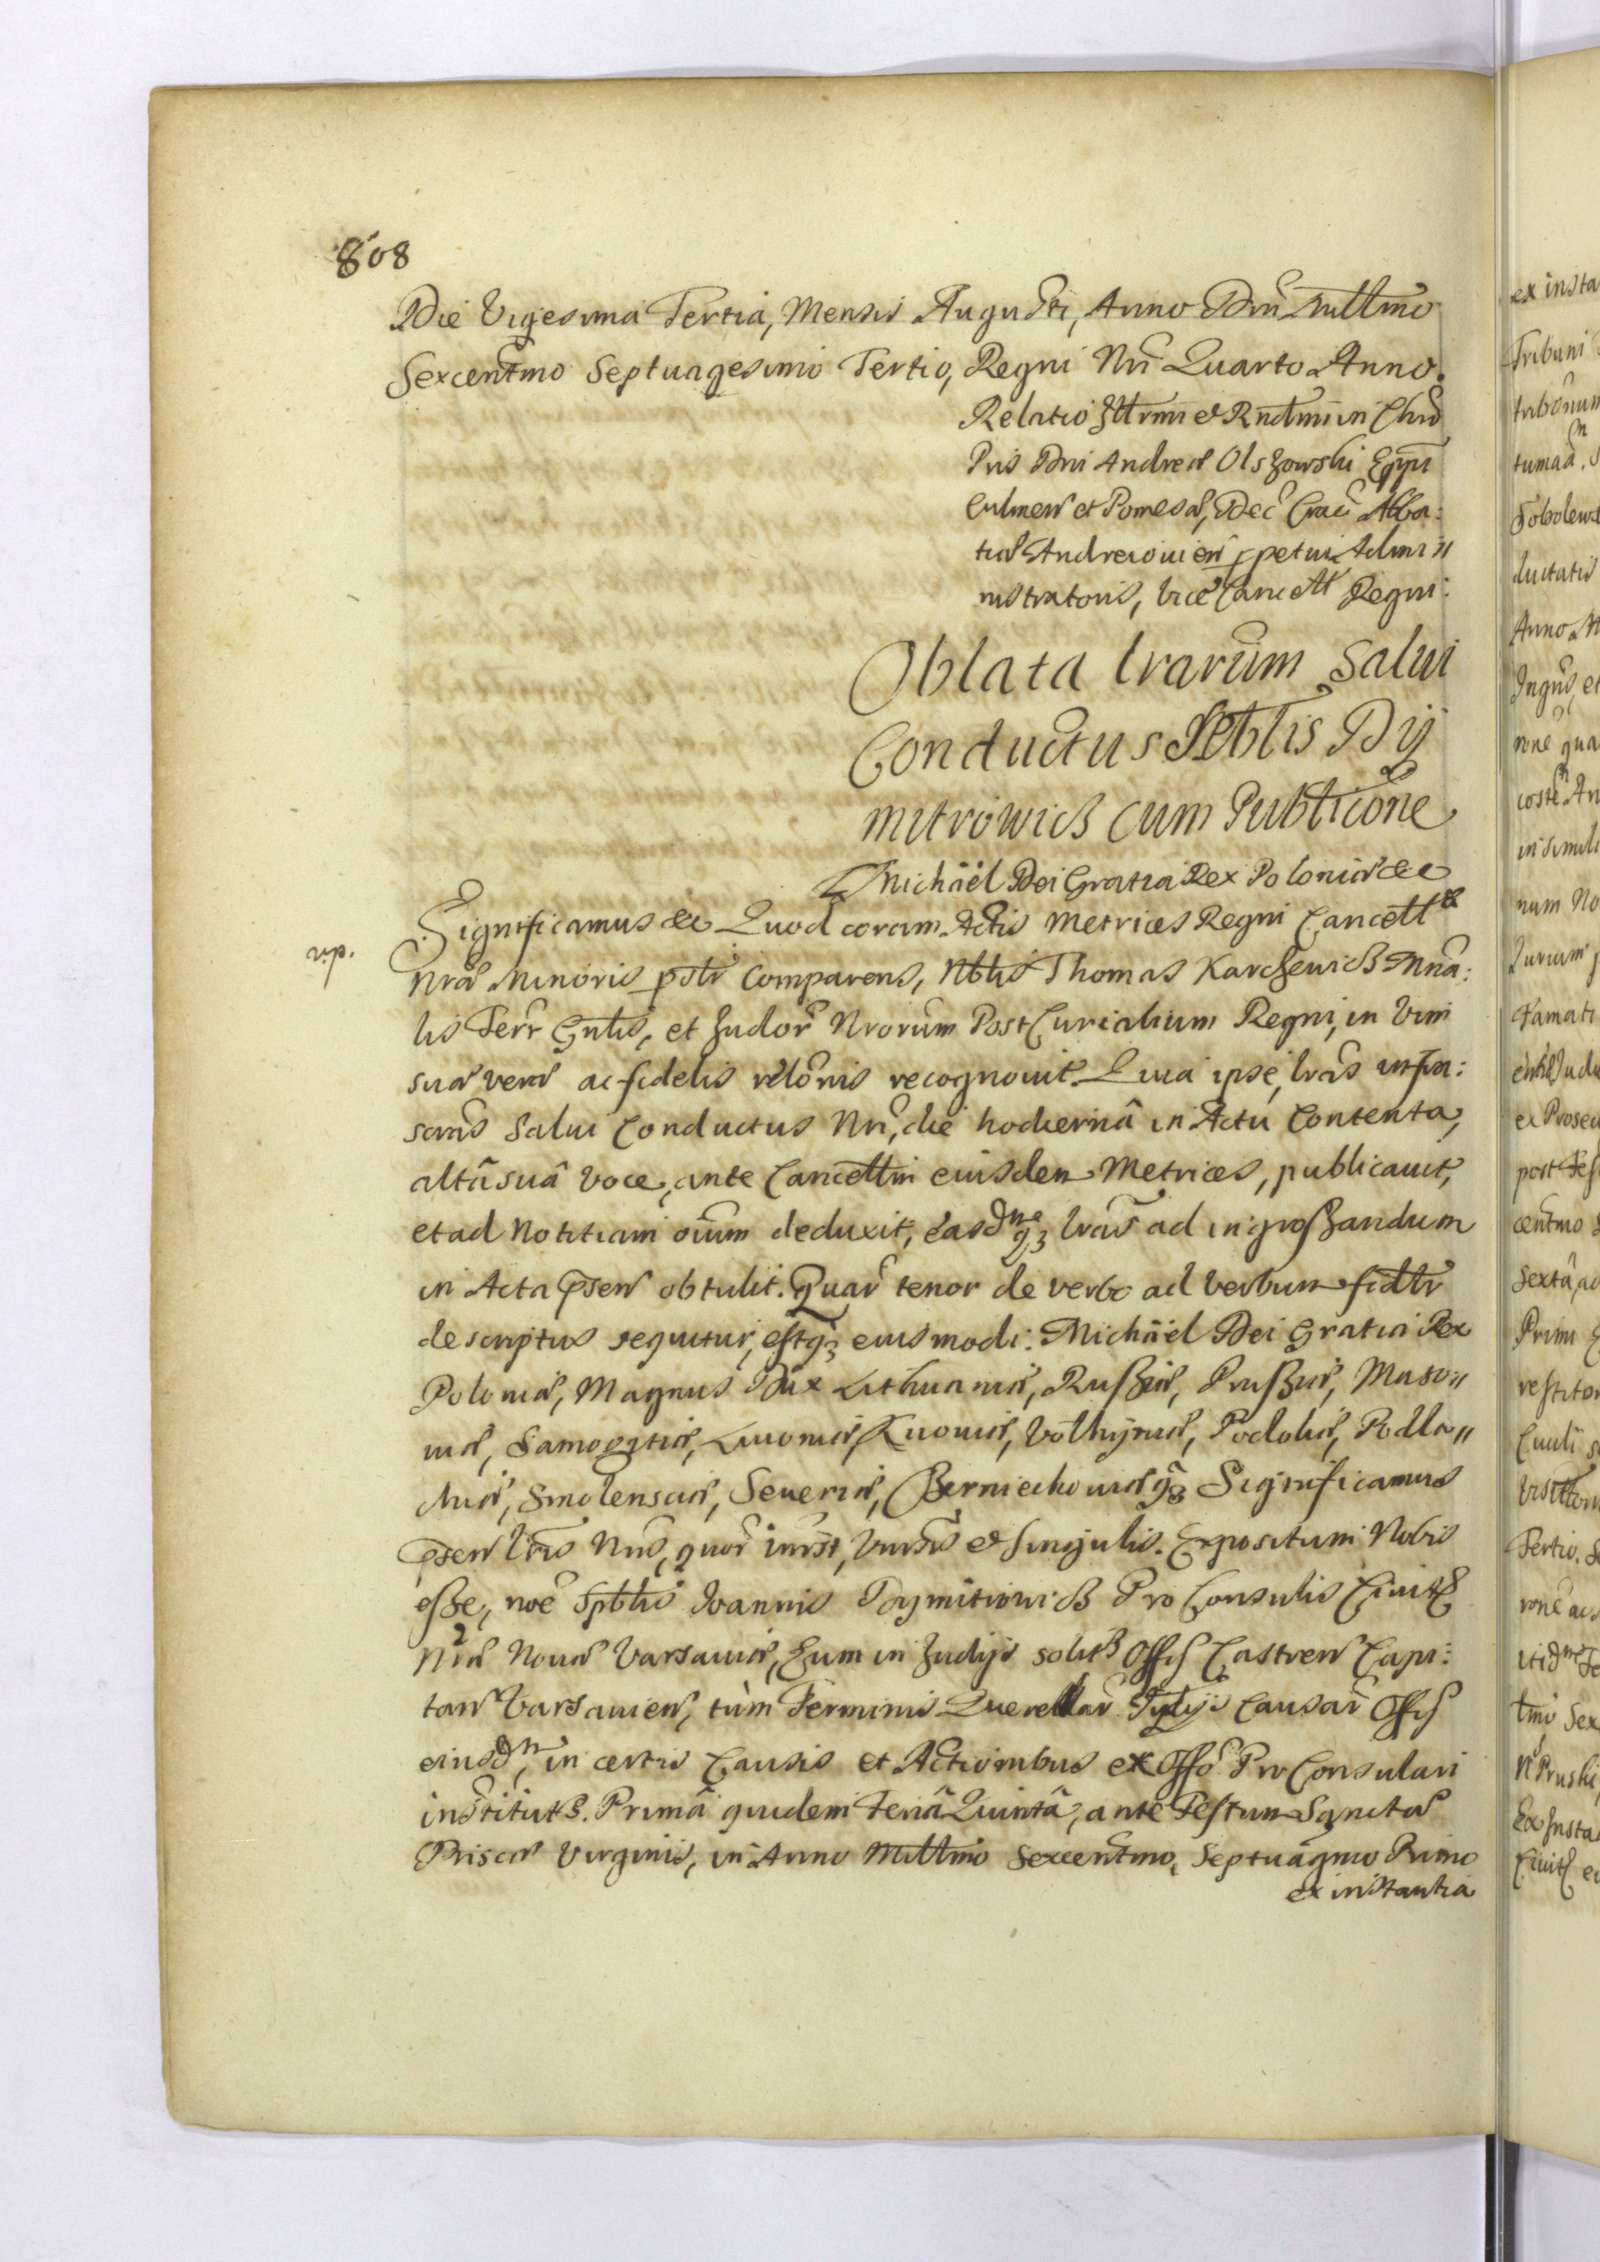 808
Die Vigesima Tertia, Mensis Augusti, Anno Dni Millmo
Sexcentmo Septuagesimo Tertio, Regni Nri Quarto Anno.
Relatio Illrmi & Rndmi in Chro
Pris Dni Andreæ Olszowski Eppi
Culmen et Pomesã, Dec Crac Abba:
tiæ Andreiouien ppetui Admi=
nistratoris, Vice Cancell Regni:
Oblata lrarum Salui
Conductus Sptblis Dy
mitrowicz cum Publicone
Michäel Dei Gratia Rex Poloniæ &c
Significamus &c Quod coram Actis Metrices Regni Cancell
vp.
Nræ Minoris pstr Comparens, Nblis Thomas Karczewicz Mna:
lis Terr Gnlis, et Judor Nrorum PostCurialium Regni, in Vim
suæ veræ ac fidelis relonis recognouit. Quia ipse lras infra:
scras Salui Conductus Nri, die hodiernâ in Actu Contenta,
altâ suâ voce, ante Cancellm eiusdem Metrices, publicauit,
et ad Notitiam oium deduxit, easdmq3 lras ad ingroszandum
in Acta psen obtulit. Quar tenor de verbo ad verbum fidlr
descriptus sequitur, estq3 eiusmodi: Michäel Dei Gratia Rex
Poloniæ, Magnus Dux Lithuaniæ, Ruszię, Pruszię, Maso=
uiæ, Samogitiæ, Liuoniæ, Kiiouiæ, Volhyniæ, Podoliæ, Podla=
chiæ, Smolensciæ, Seueriæ, Czerniechouiæq3 Significamus
psen lris Nris, quor intrst, Vnirsis & singulis. Expositum Nobis
esze, noe Sptblis Joannis Dymitrowicz Pro Consulis Ciuit
Nræ Nouæ Varsauiæ, Zum in Judijs solit Offi Castren Capi:
tan Varsauien, tùm Terminis Querellar Tylijs Causar Offi
eiusdm, in certis Causis et Actionibus ex Offo Pro Consulari
institutis. Primâ quidem Feriâ Quintâ, ante Festum Sanctæ
Priscæ Virginis, in Anno Millmo Sexcentmo, Septuagmo Primo
ex instantia